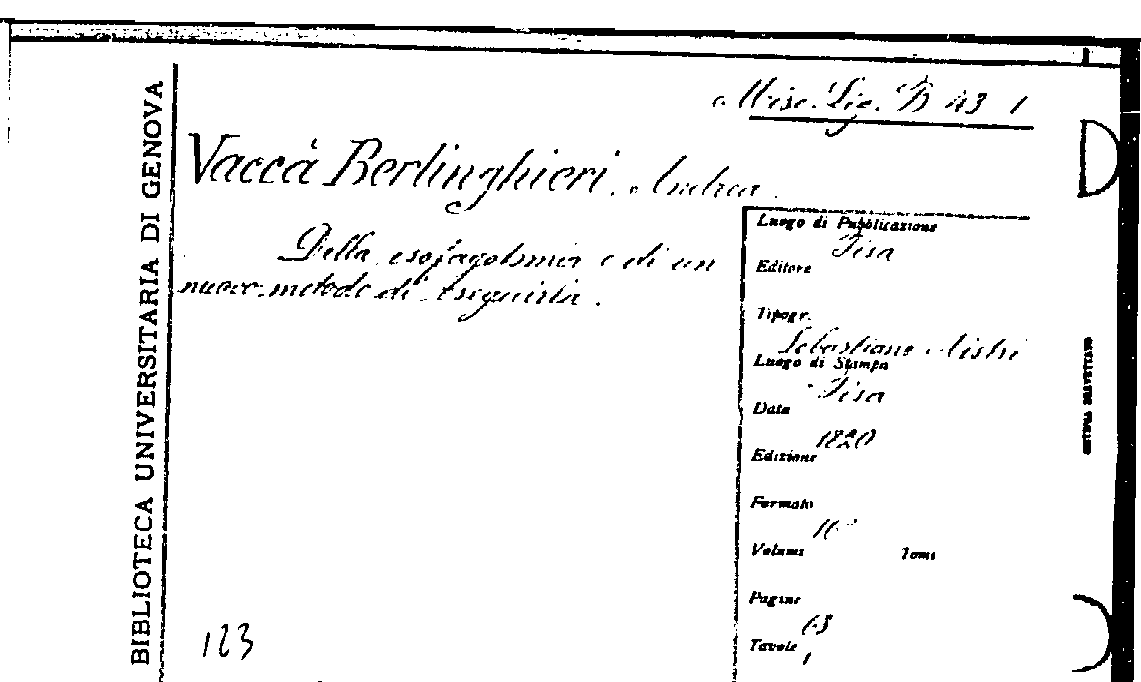 BIBLIOTECA UNIVERSITARIA DI GENOVA
Misc. Lig. B 43 1
Vaccà Berlinghieri, Andrea.
Della esofagotomia e di un
nuovo metodo di eseguirla.
Luogo di Pubblicazione
Pisa
Editore
Tipogr.
Sebastiano Nistri
Luogo di Stampa
Pisa
Data
1820
Edizione
Formato
16°
Volumi Tomi
Pagine
63
Tavole
1
123